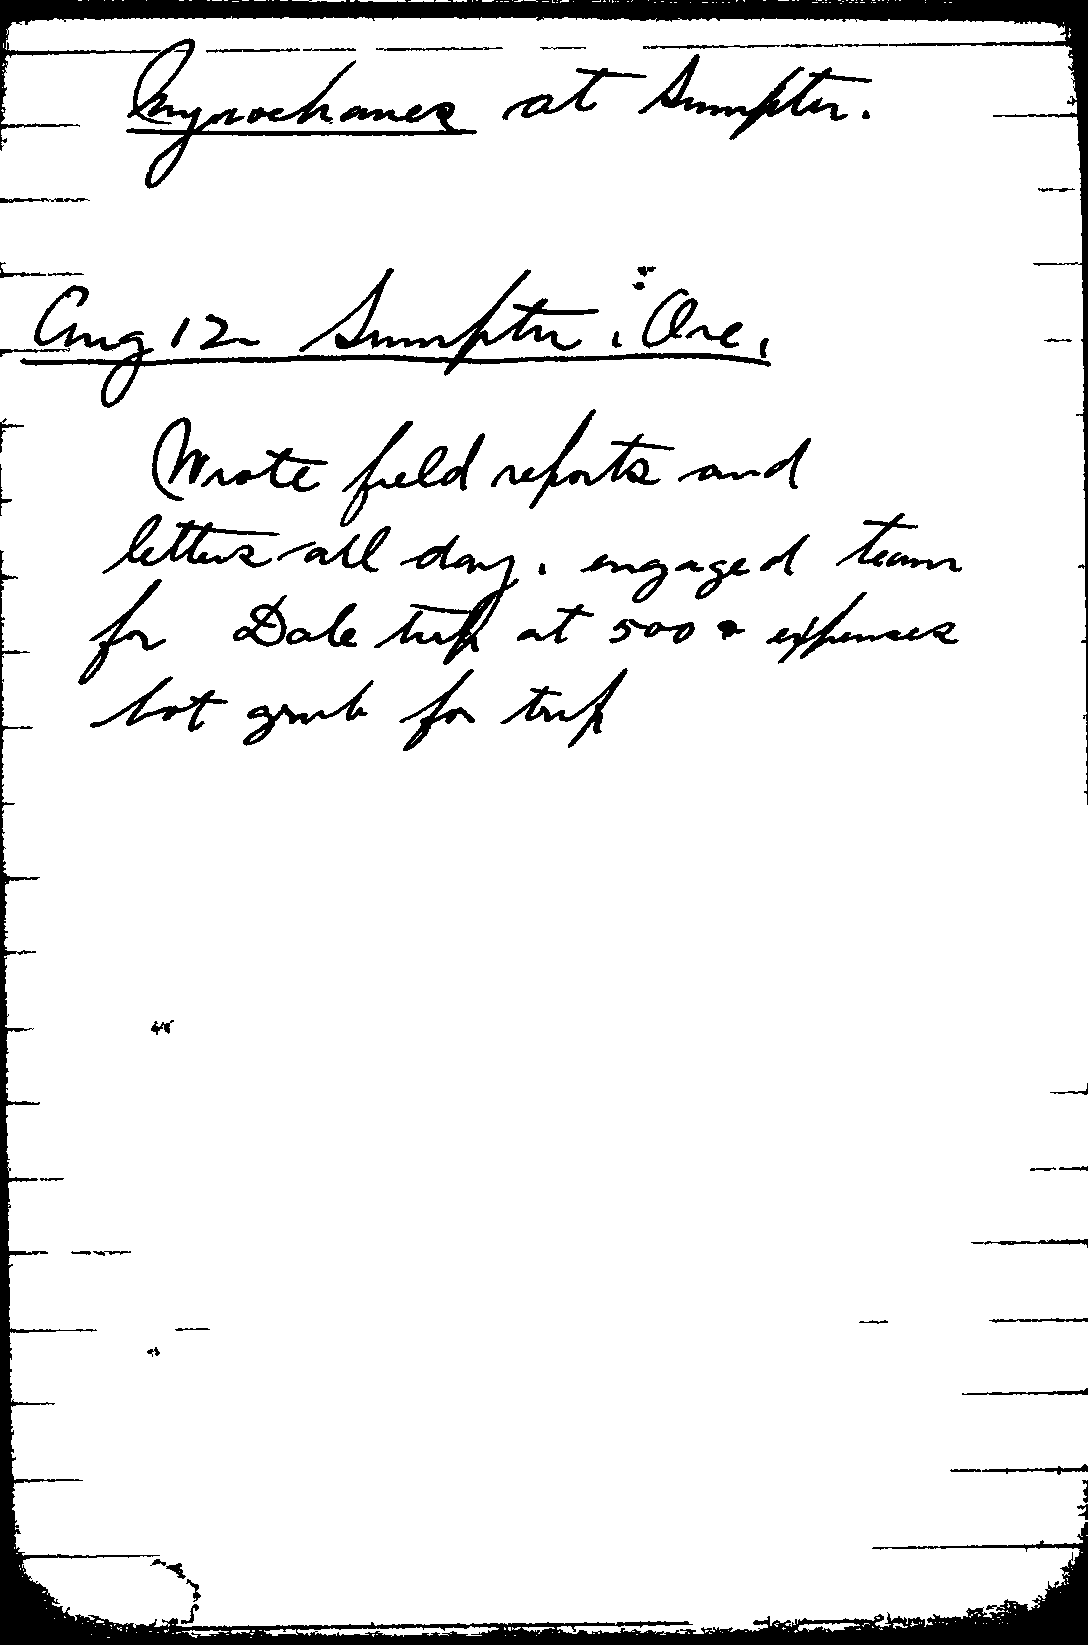 Onychomys at Sumpter.
Aug 12 Sumpter, Ore.
Wrote field reports and
letters all day. engaged team
for Dale trip at 500 & expenses
bot grub for trip